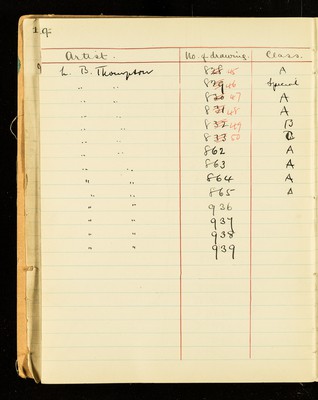 Artist. No. of drawing. Class.
L. B. Thompson 828 45 A
" " 829 46 Special
" " 830 47 A
" " 831 48 A
" " 832 49 B
" " 833 50
" " 862 A
" " 863 A
" " 864 A
" " 865 A
" " 936
" " 937
" " 938
" " 939